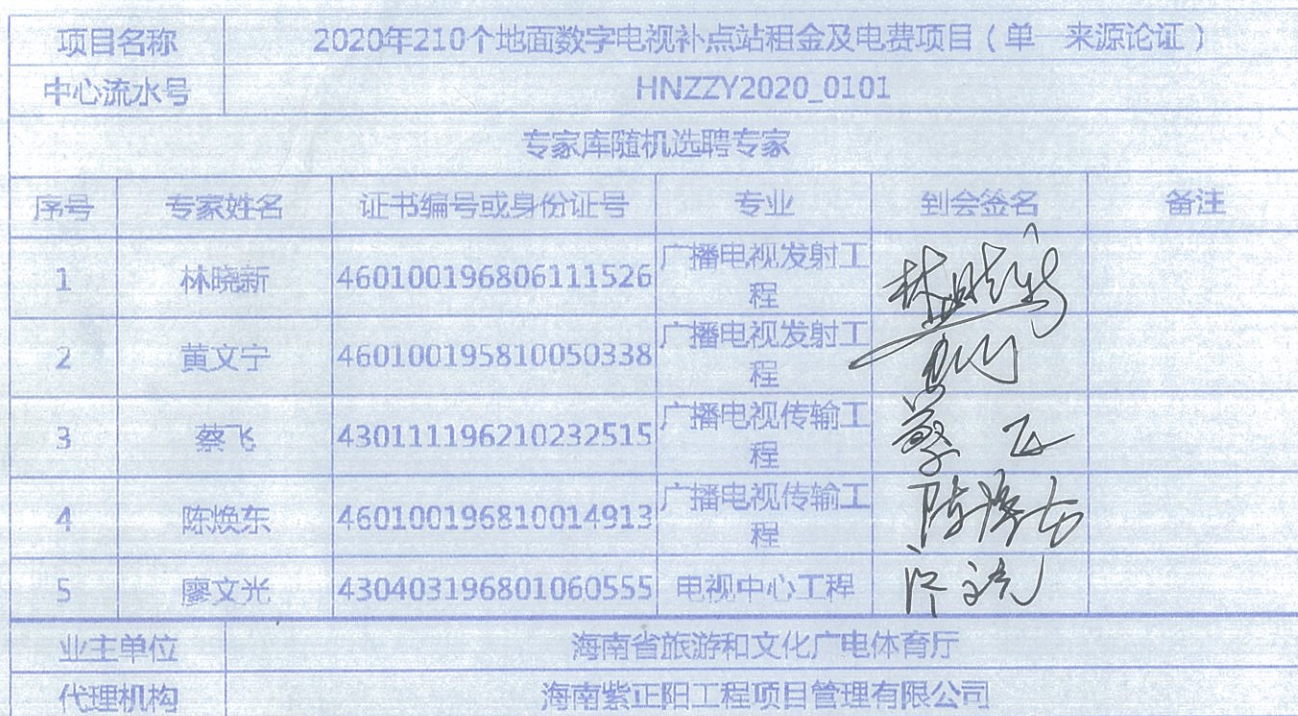 项目名称 2020年210个地面数字电视补点站租金及电费项目（单一来源论证）
中心流水号 HNZZY2020_0101
专家库随机选聘专家
序号 专家姓名 证书编号或身份证号 专业 到会签名 备注
1 林晓新 460100196806111526 广播电视发射工
程
2 黄文宁 460100195810050338 广播电视发射工
程
3 蔡飞 430111196210232515 广播电视传输工
程 蔡飞
4 陈焕东 460100196810014913 广播电视传输工
程 陈焕东
5 廖文光 430403196801060555 电视中心工程
业主单位 海南省旅游和文化广电体育厅
代理机构 海南紫正阳工程项目管理有限公司